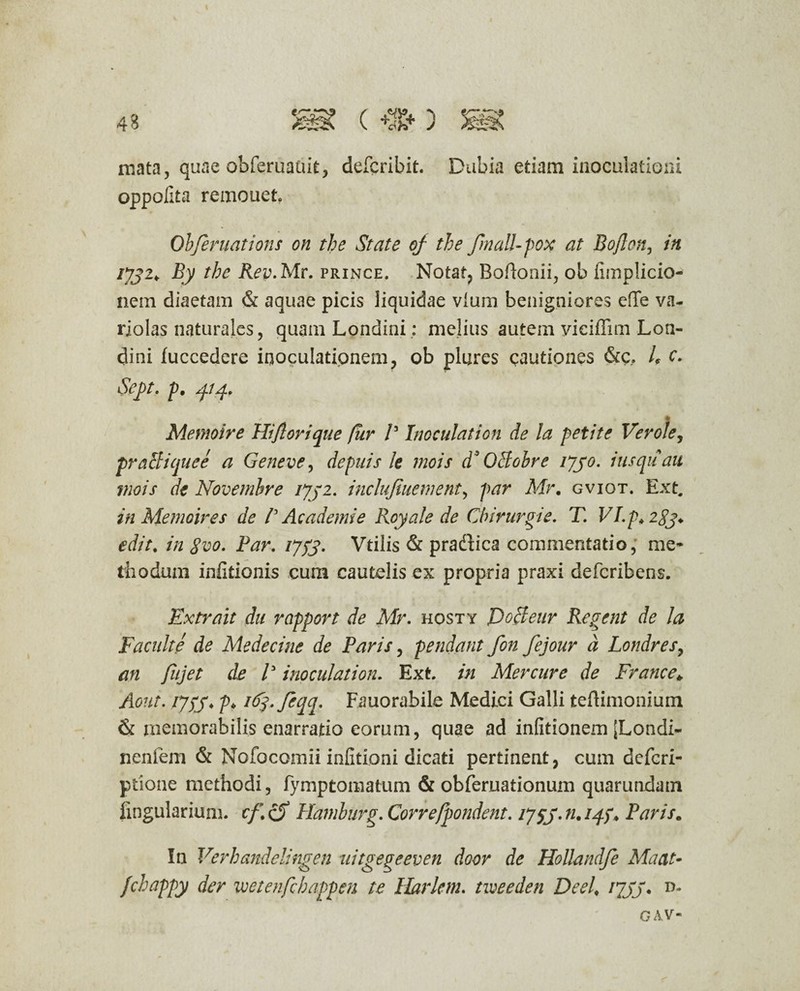 48 ( ✠ )
mata, quae obſeruauit, deſcribit. Dubia etiam inoculationi
oppoſita remouet.
Obſeruations on the State of the ſmall-pox at Boſton, in
1752. By the Rev. Mr. PRINCE. Notat, Boſtonii, ob ſimplicio-
nem diaetam & aquae picis liquidae vſum benigniores eſſe va-
riolas naturales, quam Londini: melius autem viciſſim Lon-
dini ſuccedere inoculationem, ob plures cautiones &c. l. c.
Sept. p. 414.
Memoire Hiſtorique ſur l' Inoculation de la petite Verole,
practiqueé a Geneve, depuis le mois d' Octobre 1750. iusqu'au
mois de Novembre 1752. incluſiuement, par Mr. GVIOT. Ext.
in Memoires de l' Academie Royale de Chirurgie. T. VI. p. 283.
edit. in 8vo. Par. 1753. Vtilis & practica commentatio, me-
thodum inſitionis cum cautelis ex propria praxi deſcribens.
Extrait du rapport de Mr. HOSTY Docteur Regent de la
Faculté de Medecine de Paris, pendant ſon ſejour à Londres,
an ſujet de l' inoculation. Ext. in Mercure de France.
Aout. 1755. p. 163. ſeqq. Fauorabile Medici Galli teſtimonium
& memorabilis enarratio eorum, quae ad inſitionem [Londi-
nenſem & Noſocomii inſitioni dicati pertinent, cum deſcri-
ptione methodi, ſymptomatum & obſeruationum quarundam
ſingularium. cf. & Hamburg. Correſpondent. 1755. n. 145. Paris.
In Verhandelingen uitgegeeven door de Hollandſe Maat-
ſchappy der wetenſchappen te Harlem. tweeden Deel. 1755. D.
GAV-